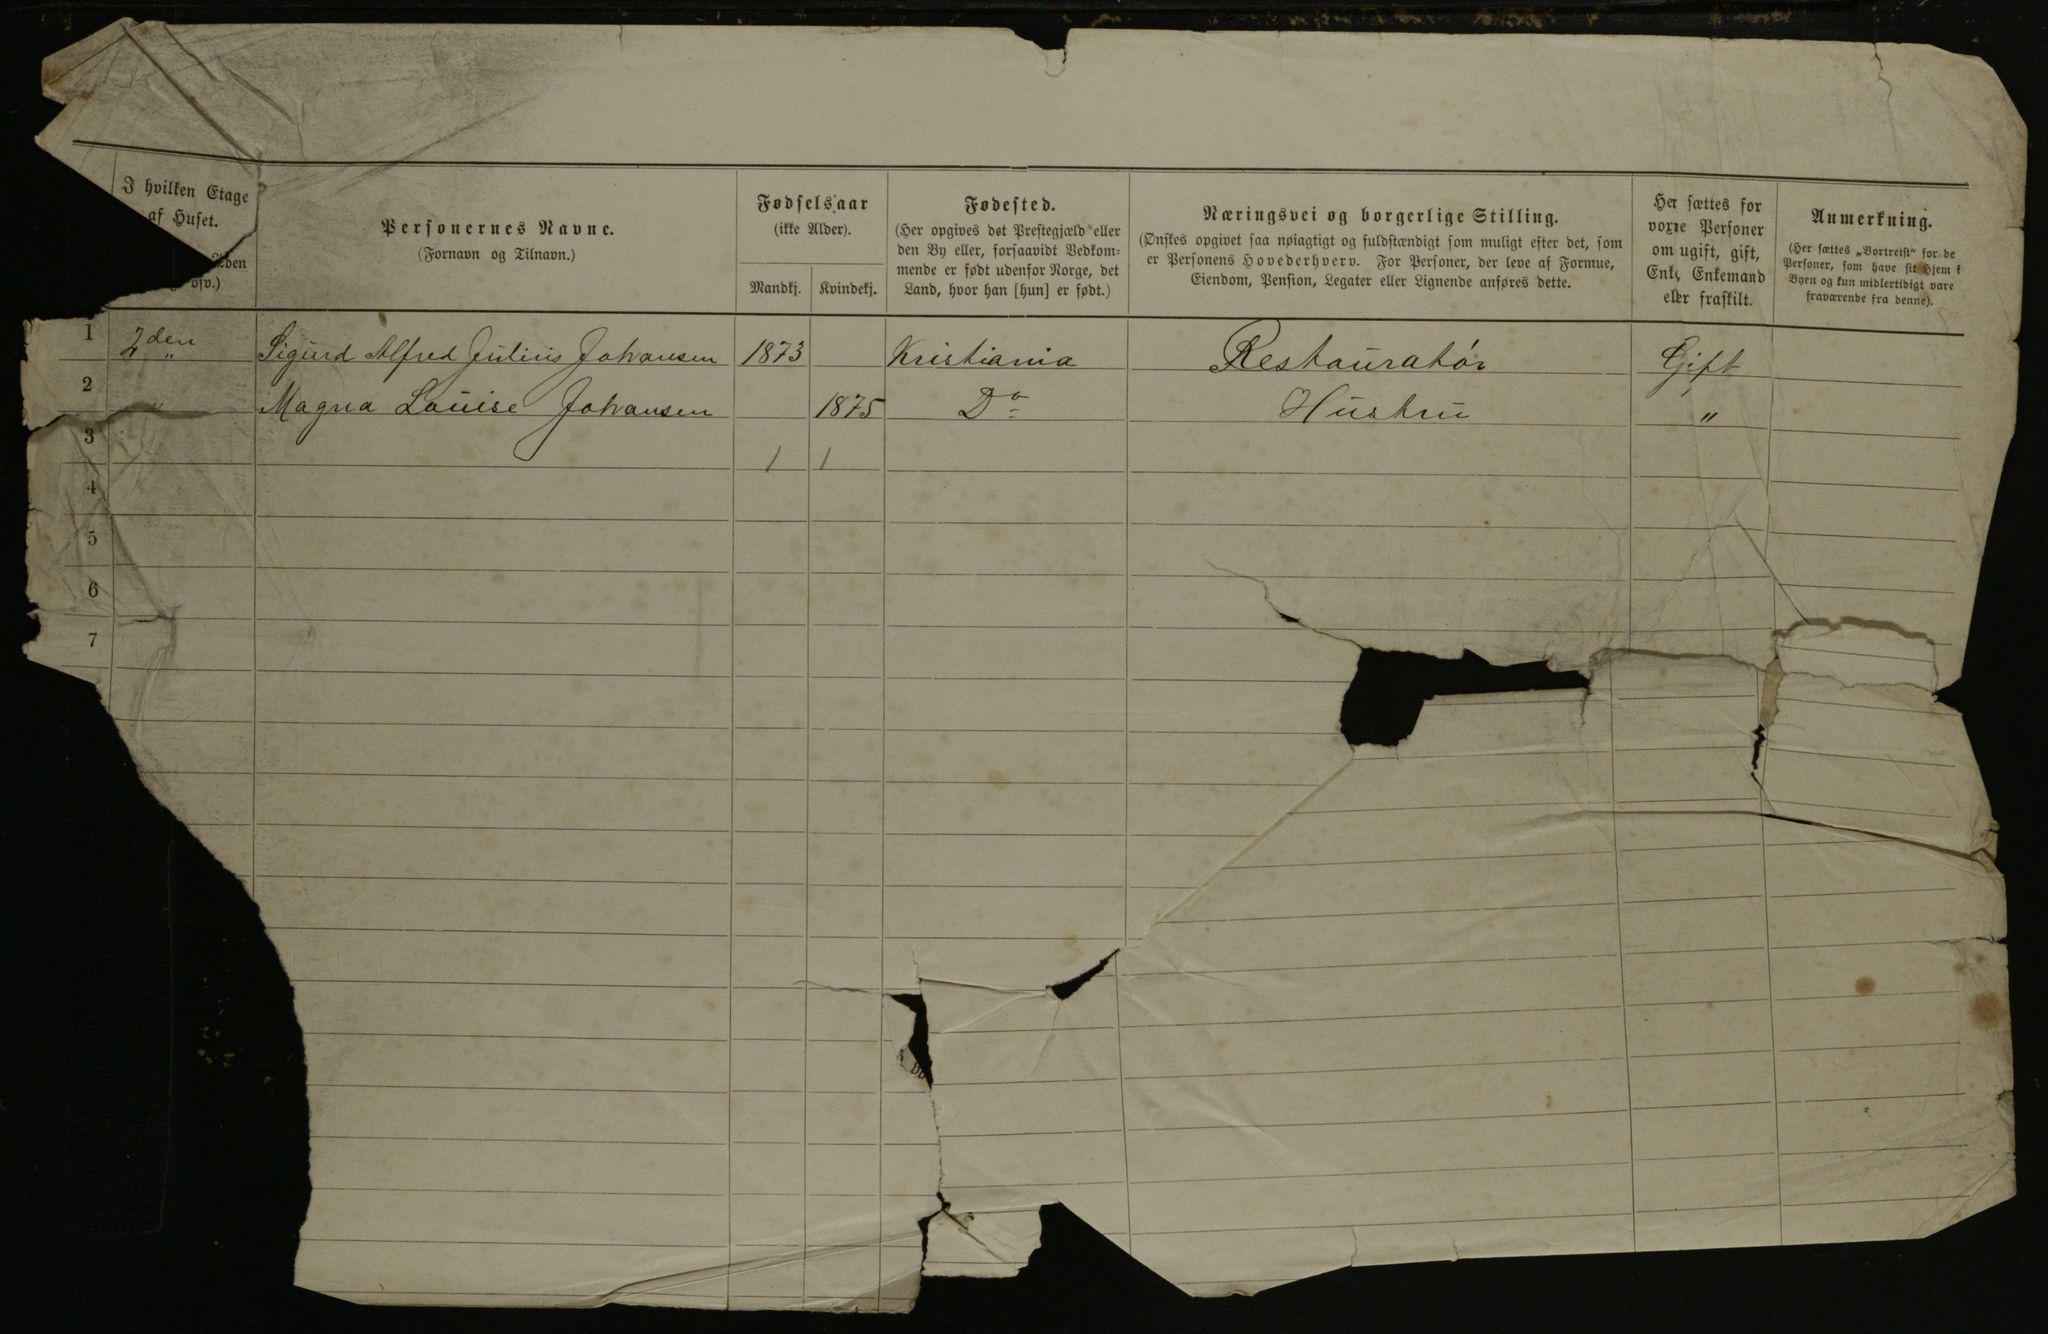 I hvilken Etage
af Huset.
2den
osv.)
Personernes Navne.
(Fornavn og Tilnavn.)
Fødselsaar
(ikke Alder).
Mandkj. Kvindekj.
Fødested.
(Her opgives det Prestegjæld eller
den By eller, forsaavidt Vedkom-
mende er født udenfor Norge, det
Land, hvor han [hun] er født.)
Næringsvei og borgerlige Stilling.
(Ønskes opgivet saa nøiagtigt og fuldstændigt som muligt efter det, som
er Personens Hovederhverv. For Personer, der leve af Formue,
Eiendom, Pension, Legater eller Lignende anføres dette.
Her sættes for
voxne Personer
om ugift, gift,
Enke, Enkemand
eller fraskilt.
Anmerkning.
(Her sættes „Bortreist“ for de
Personer, som have sit Hjem i
Byen og kun midlertidigt vare
fraværende fra denne).
1 2den " Sigurd Alfred Julius Johansen 1873 Kristiania Restauratør Gift
2 " Magna Louise Johansen 1875 Do Hustru "
3 1 1
4
5
6
7